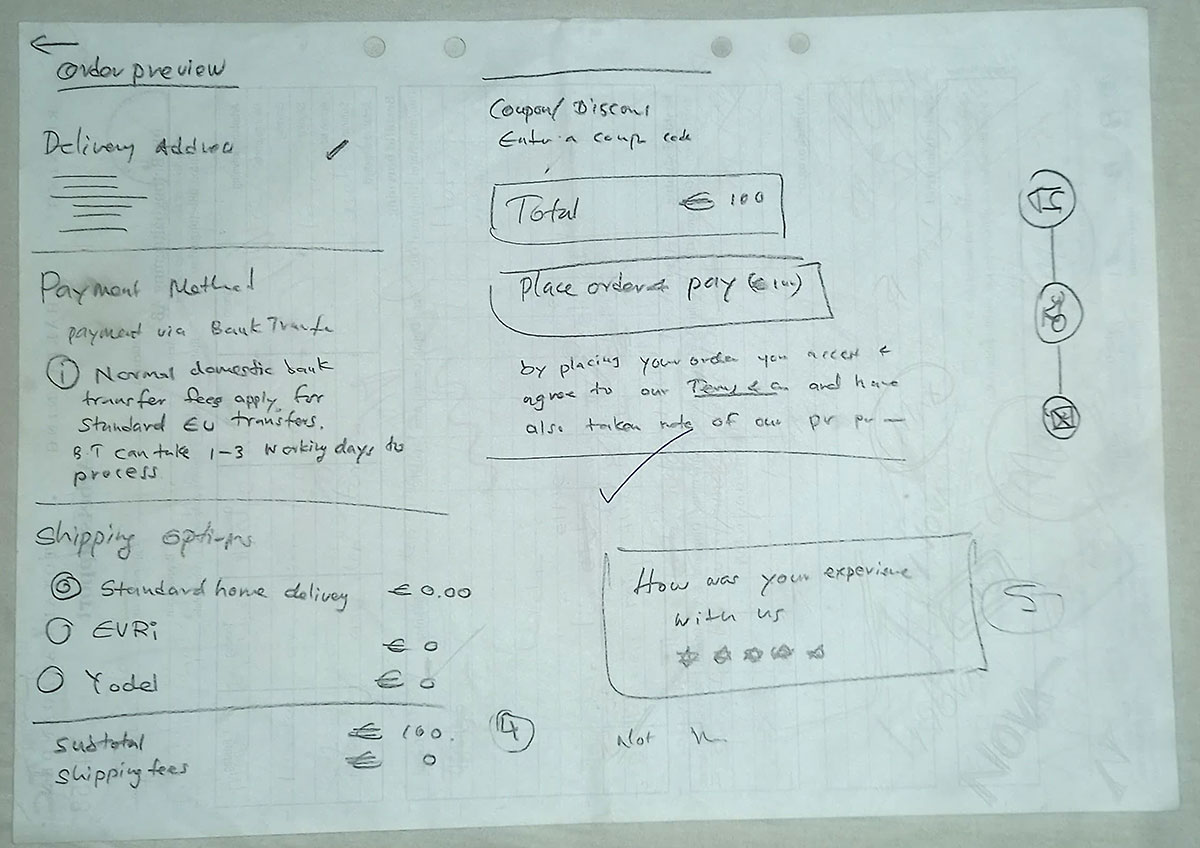 Order preview
Delivery Addres
Payment Method
payment via Bank Transfe
i Normal domestic bank
transfer fees apply for
Standard EU transfers.
B.T can take 1-3 working days to
process
Shipping Options
Standard home delivey € 0.00
EVRi € 0
Yodel € 0
Subtotal € 100.
Shipping fees € 0
4
Coupon/ Discount
Enter a coupn code
Total € 100
Place order & pay (€100)
by placing your order you accept &
agree to our and have
also taken note of our
How was your experience
with us
Not
5